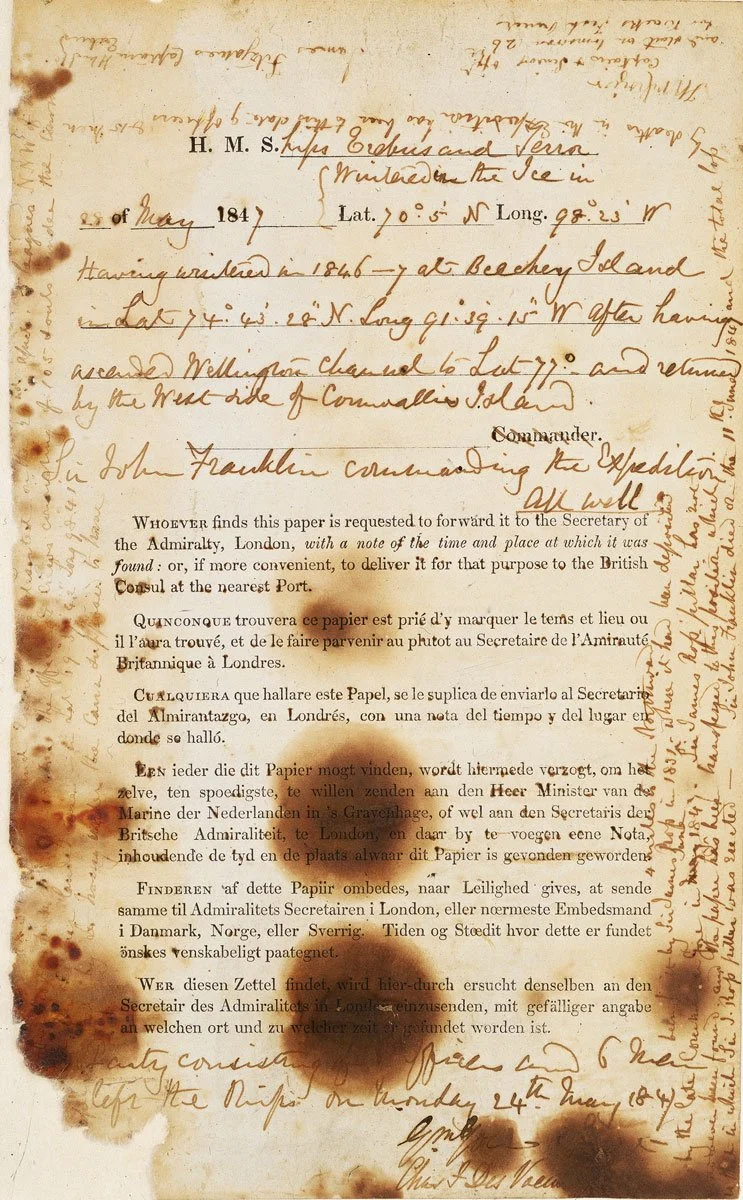 H. M. S. hips Erebus and Terror
Wintered in the Ice in
28 of May 1847 Lat. 70° 5' N Long. 98° 23' W
Having wintered in 1846–7 at Beechey Island
in Lat 74° 43' 28" N. Long 91° 39' 15" W After having
ascended Wellington Channel to Lat 77° – and returned
by the West side of Cornwallis Island.
Commander.
Sir John Franklin commanding the Expedition
All well
WHOEVER finds this paper is requested to forward it to the Secretary of
the Admiralty, London, with a note of the time and place at which it was
found: or, if more convenient, to deliver it for that purpose to the British
Consul at the nearest Port.
QUINCONQUE trouvera ce papier est prié d'y marquer le tems et lieu ou
il l'aura trouvé, et de le faire parvenir au plutot au Secretaire de l'Amirauté
Britannique à Londres.
CUALQUIERA que hallare este Papel, se le suplica de enviarlo al Secretario
del Almirantazgo, en Londrés, con una nota del tiempo y del lugar en
donde se halló.
EEN ieder die dit Papier mogt vinden, wordt hiermede verzogt, om het
zelve, ten spoedigste, te willen zenden aan den Heer Minister van de
Marine der Nederlanden in 's Gravenhage, of wel aan den Secretaris der
Britsche Admiraliteit, te London, en daar by te voegen eene Nota,
inhoudende de tyd en de plaats alwaar dit Papier is gevonden geworden.
FINDEREN af dette Papiir ombedes, naar Leilighed gives, at sende
samme til Admiralitets Secretairen i London, eller nœrmeste Embedsmand
i Danmark, Norge, eller Sverrig. Tiden og Stœdit hvor dette er fundet
önskes venskabeligt paategnet.
WER diesen Zettel findet, wird hier-durch ersucht denselben an den
Secretair des Admiralitets in London einzusenden, mit gefälliger angabe
an welchen ort und zu welcher zeit er gefundet worden ist.
Party consisting of officers and 6 Men
left the Ships on Monday 24th May 1847
Gm Gore
Chas F Des Voeux
by Sir James Ross in 1831 where it had been deposited
4 miles to the Northward
by the late Commander Gore in May June 1847. Sir James Ross' pillar has not
however been found and the paper has been transferred to this position which
is that in which Sir J. Ross' pillar was erected – Sir John Franklin died on the 11th June 1847 and the total loss
by deaths in the Expedition has been to this date 9 officers & 15 men
James Fitzjames Captain HMS Erebus
Captain & Senior Offr
and start on tomorrow 26th
for Backs Fish River
105 souls under the